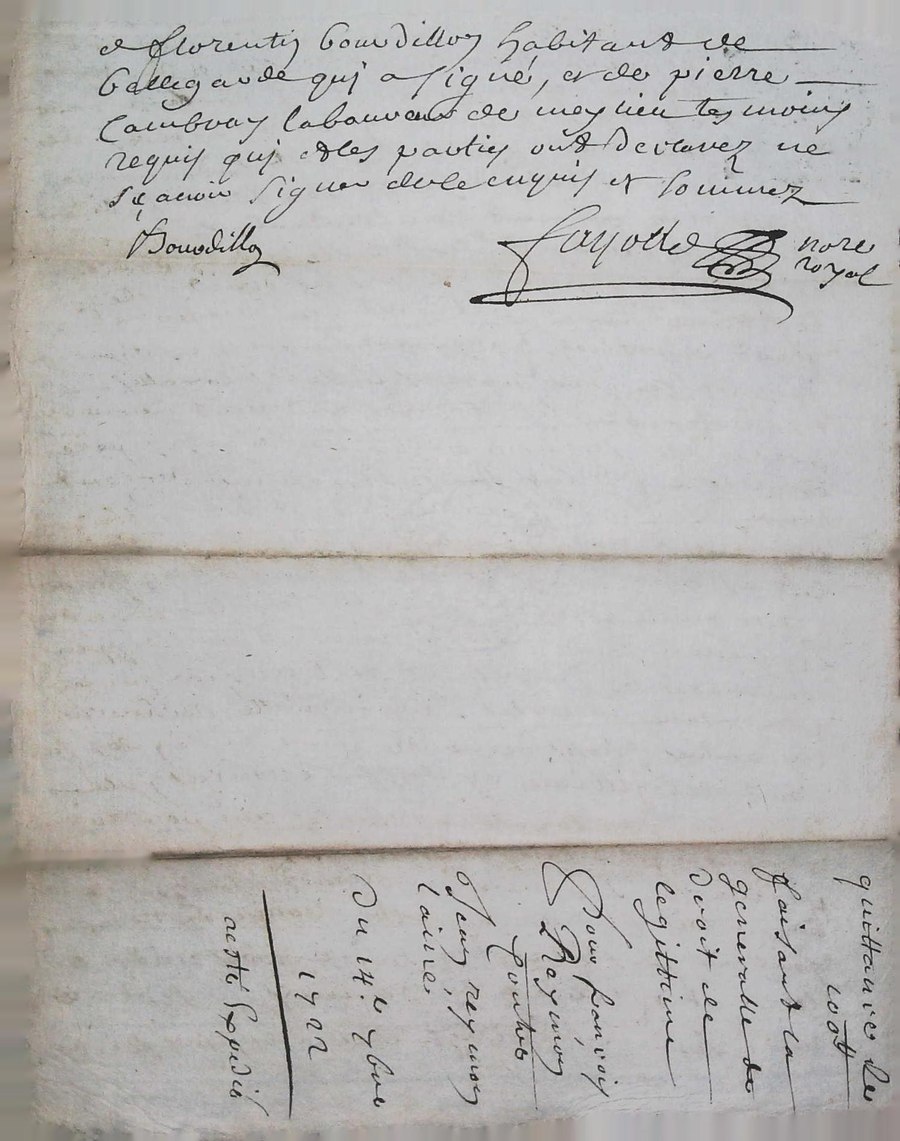 et florentin Bourdillon habitant de
bellegarde qui a signé, et de pierre
laboureur de meylieu tesmoins
requis qui et les parties ont declarez ne
sçavoir signer de ce enquis et sommez
Bourdillon
fayolle nore
royal
quittance de
100tt
faisant la
generalle du
droit de
legittime
Pour françois
Reymon
Contre
Jean reymon
laisné
Du 14e 7bre
1722
acte Expedié